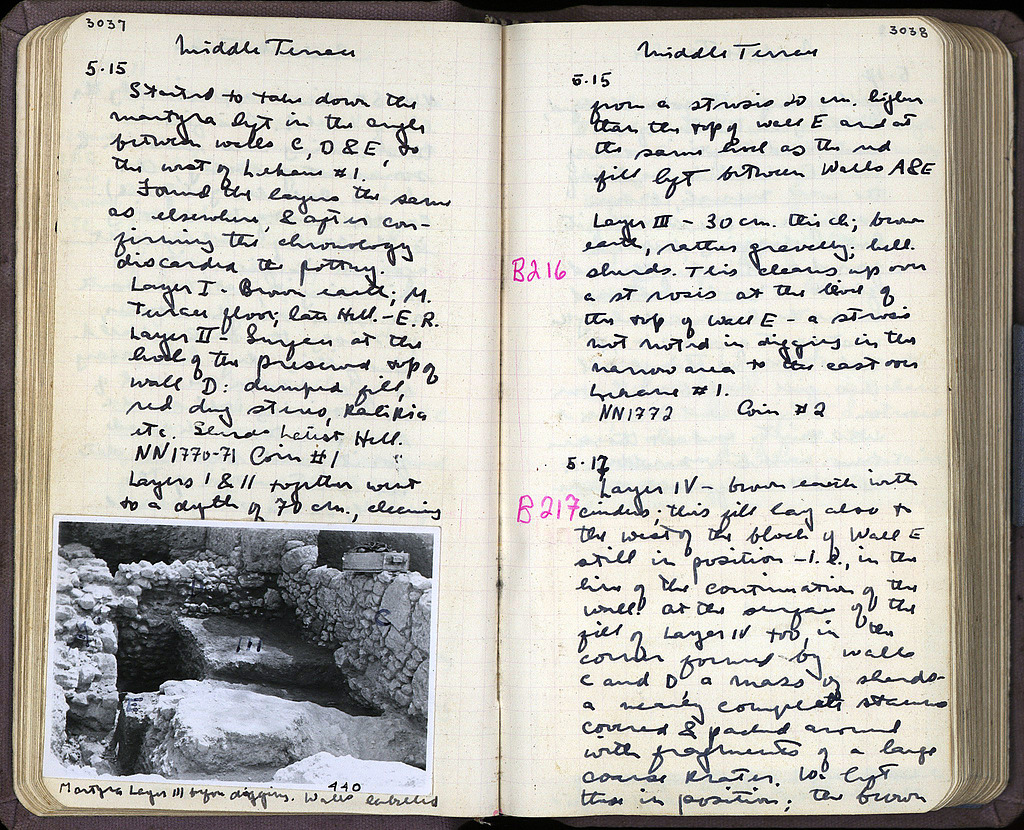 3037
Middle Terrace
5.15
Started to take down the
martyra left in the angle
between walls C, D & E, to
the west of Lekane #1.
Found the layers the same
as elsewhere, & after con-
firming the chronology
discarded the pottery.
Layer I - Brown earth; M.
Terrace floor; late Hell. - E.R.
Layer II - Surface at the
level of the preserved top of
wall D: dumped fill,
red dug stereo, Kalikia
etc. Sherds latest Hell.
NN1770-71 Coin #1
Layers I & II together went
to a depth of 70 cm., cleaning
III
C
440
Martyra Layer III before digging. Walls labelled
3038
Middle Terrace
5.15
from a strosis 20 cm. higher
than the top of wall E and at
the same level as the red
fill left between Walls A&E
Layer III - 30 cm. thick; brown
earth, rather gravelly; hell.
B216
sherds. This cleans up over
a strosis at the level of
the top of Wall E - a strosis
not noted in digging in the
narrow area to the east over
Lekane #1.
NN1772 Coin #2
5.17
Layer IV - brown earth with
B217
cinders; this fill lay also to
the west of the block of Wall E
still in position - i.e., in the
line of the continuation of the
wall. At the surface of the
fill of Layer IV too, in the
corner formed by walls
C and D, a mass of sherds -
a nearly complete stamnos
covered & packed around
with fragments of a large
coarse krater. We left
these in position; the brown